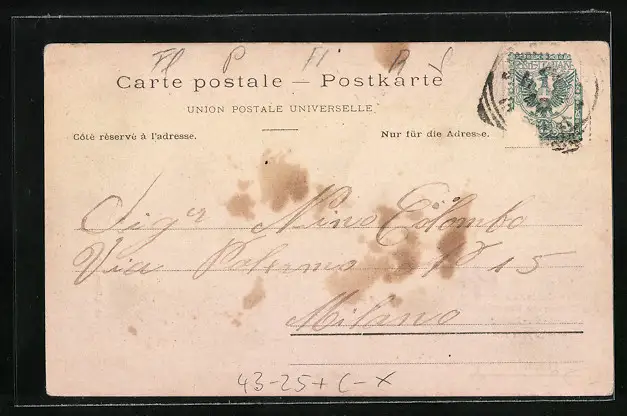 Fl P Fl R V
Carte postale — Postkarte
UNION POSTALE UNIVERSELLE
Côté réservé à l'adresse. Nur für die Adresse.
POSTE ITALIANE
1
Sigr Nino Colombo
Via Palermo No 15
Milano
43-25+C-X